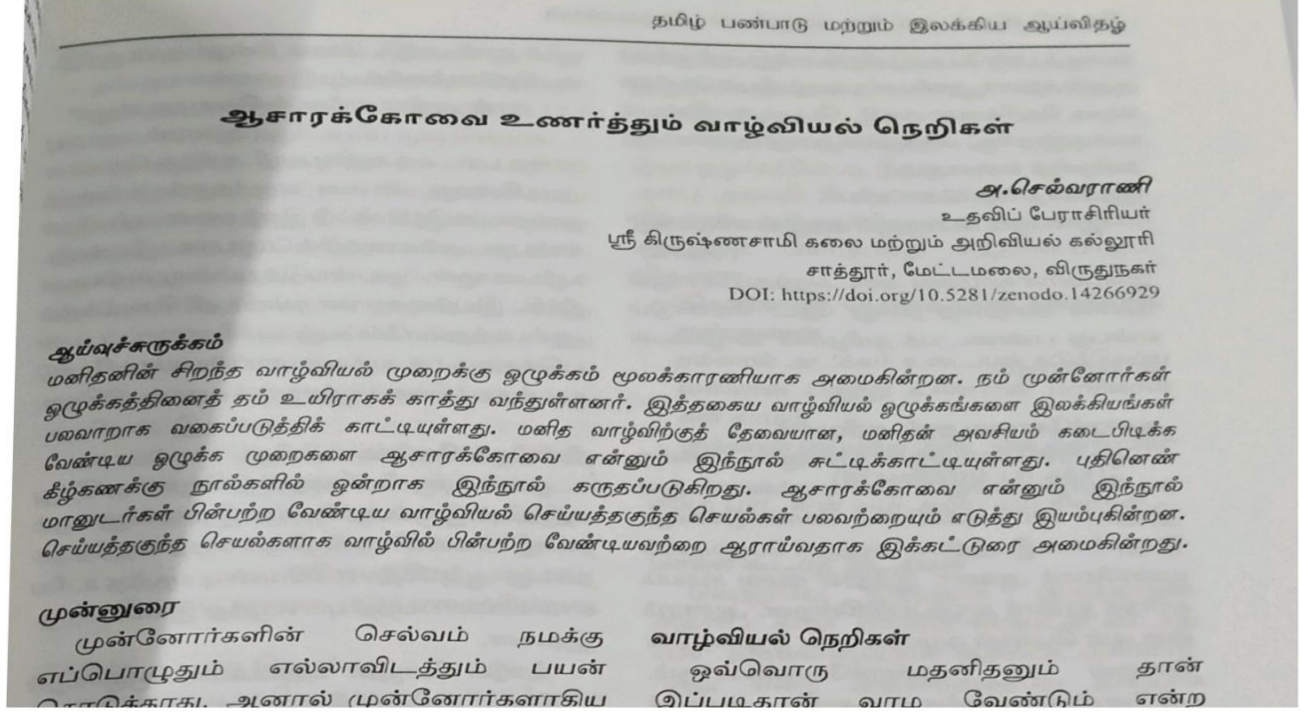 தமிழ் பண்பாடு மற்றும் இலக்கிய ஆய்விதழ்
ஆசாரக்கோவை உணர்த்தும் வாழ்வியல் நெறிகள்
அ.செல்வராணி
உதவிப் பேராசிரியர்
ஸ்ரீ கிருஷ்ணசாமி கலை மற்றும் அறிவியல் கல்லூரி
சாத்தூர், மேட்டமலை, விருதுநகர்
DOI: https://doi.org/10.5281/zenodo.14266929
ஆய்வுச்சுருக்கம்
மனிதனின் சிறந்த வாழ்வியல் முறைக்கு ஒழுக்கம் மூலக்காரணியாக அமைகின்றன. நம் முன்னோர்கள்
ஒழுக்கத்தினைத் தம் உயிராகக் காத்து வந்துள்ளனர். இத்தகைய வாழ்வியல் ஒழுக்கங்களை இலக்கியங்கள்
பலவாறாக வகைப்படுத்திக் காட்டியுள்ளது. மனித வாழ்விற்குத் தேவையான, மனிதன் அவசியம் கடைபிடிக்க
வேண்டிய ஒழுக்க முறைகளை ஆசாரக்கோவை என்னும் இந்நூல் சுட்டிக்காட்டியுள்ளது. புதினெண்
கீழ்கணக்கு நூல்களில் ஒன்றாக இந்நூல் கருதப்படுகிறது. ஆசாரக்கோவை என்னும் இந்நூல்
மானுடர்கள் பின்பற்ற வேண்டிய வாழ்வியல் செய்யத்தகுந்த செயல்கள் பலவற்றையும் எடுத்து இயம்புகின்றன.
செய்யத்தகுந்த செயல்களாக வாழ்வில் பின்பற்ற வேண்டியவற்றை ஆராய்வதாக இக்கட்டுரை அமைகின்றது.
முன்னுரை
முன்னோர்களின் செல்வம் நமக்கு
எப்பொழுதும் எல்லாவிடத்தும் பயன்
ஆனால் முன்னோர்களாகிய
வாழ்வியல் நெறிகள்
ஒவ்வொரு மதனிதனும் தான்
இப்படிதான் வாழ வேண்டும் என்ற